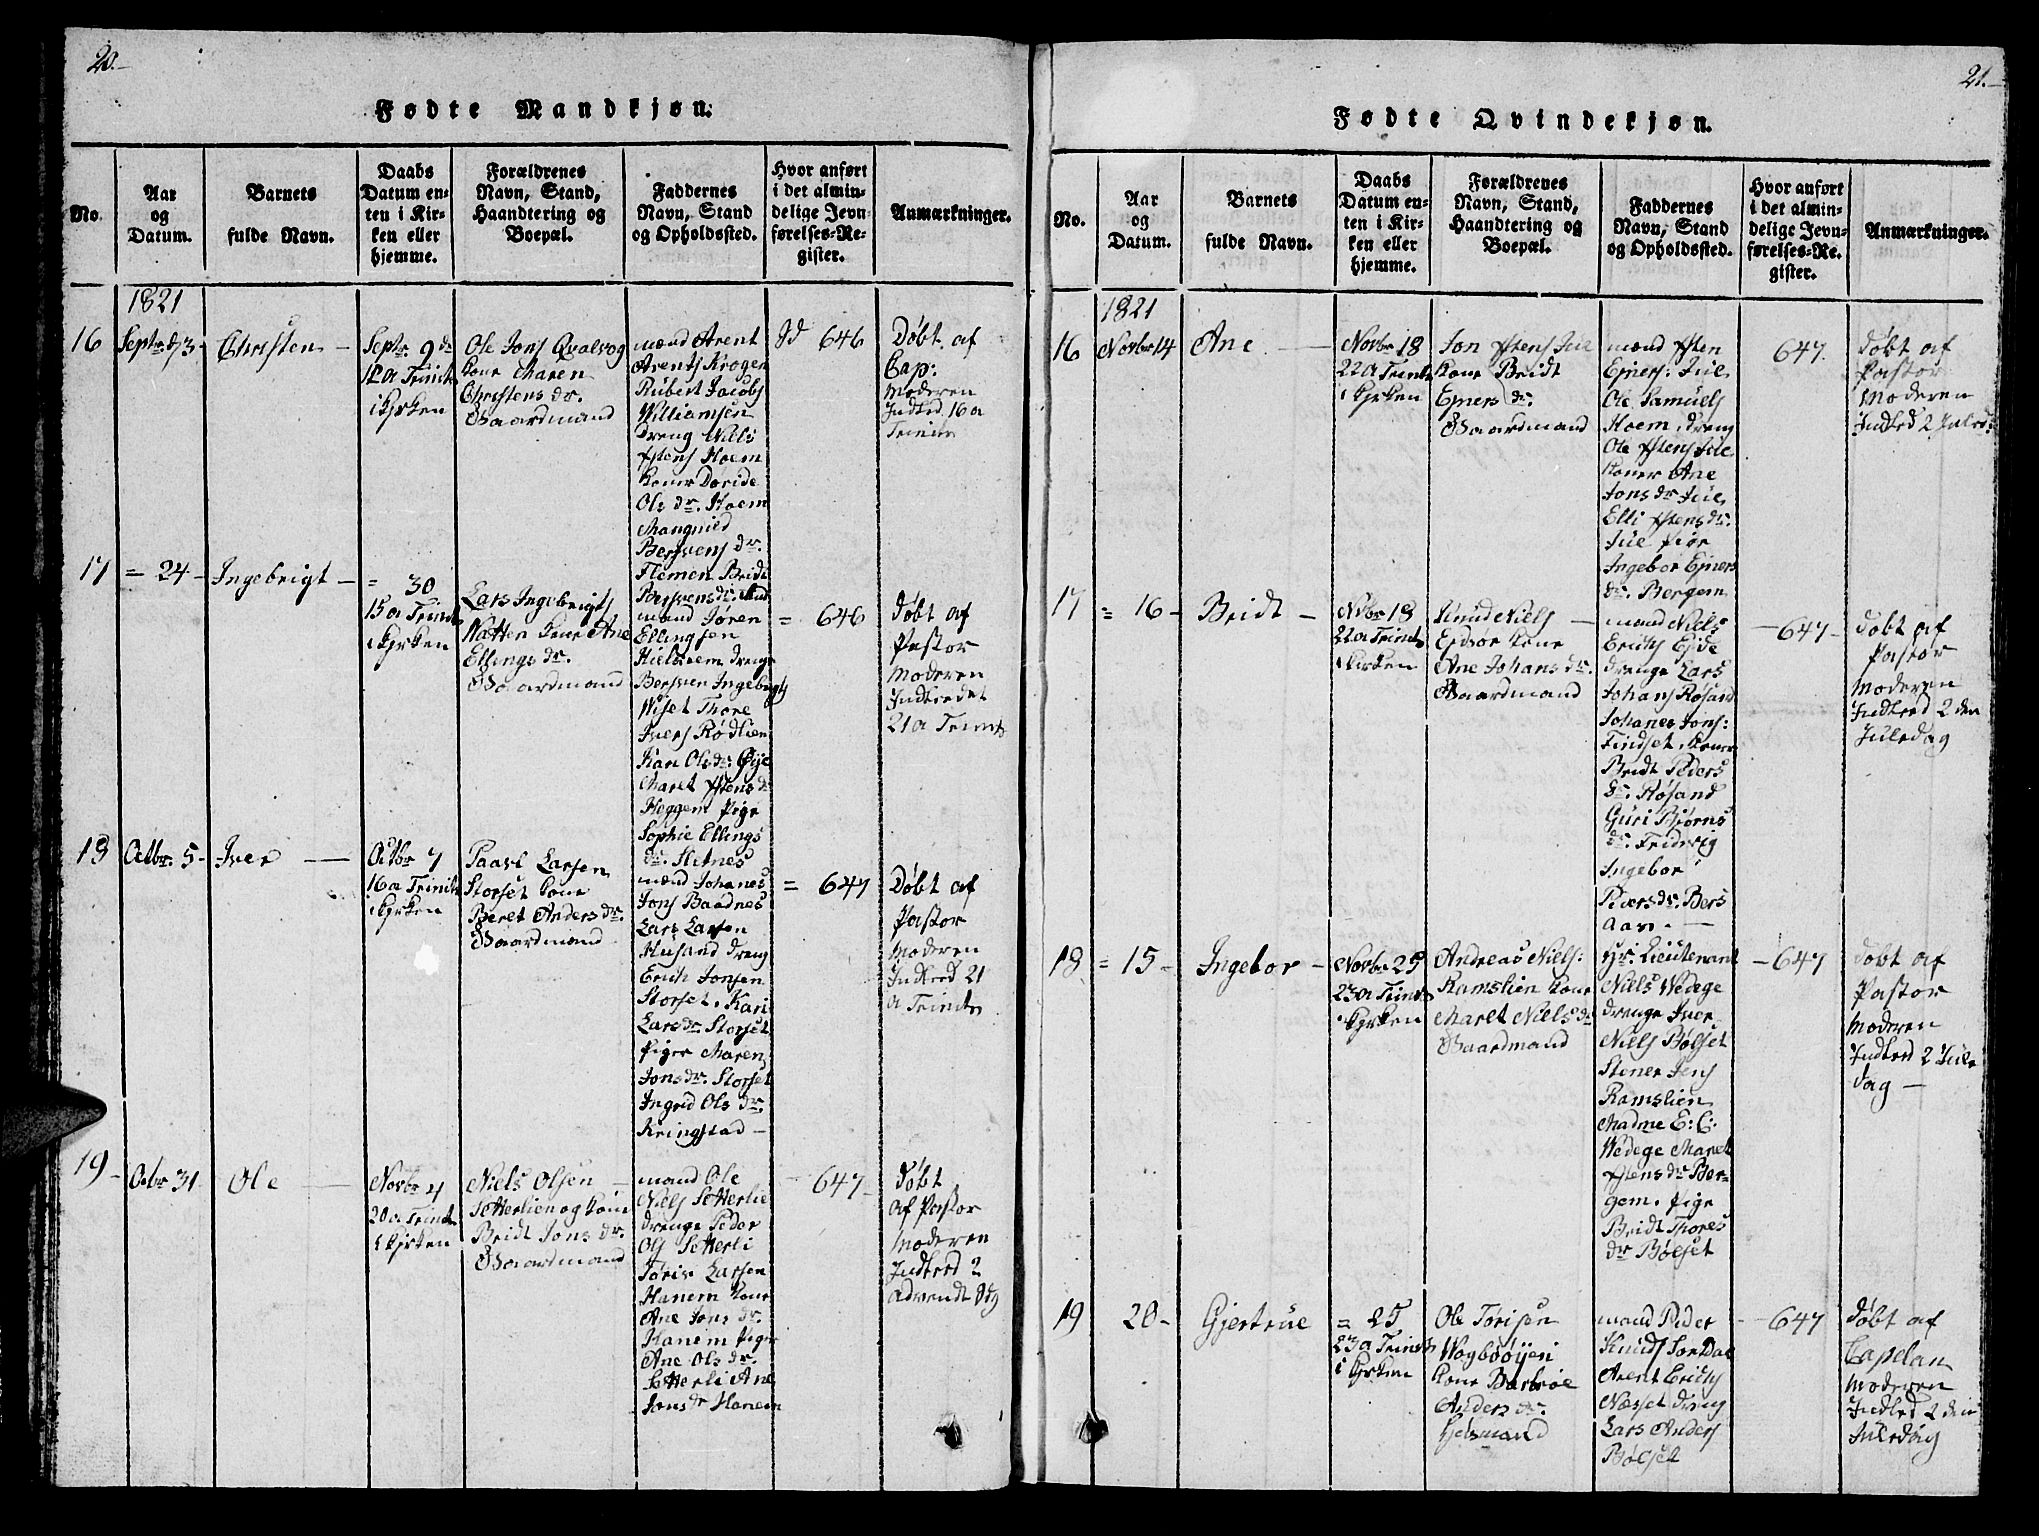 20.
Fødte Mandkjøn.
No.
Aar
og
Datum.
Barnets
fulde Navn.
Daabs
Datum en-
ten i Kir-
ken eller
hjemme.
Forældrenes
Navn, Stand,
Haandtering og
Boepæl.
Faddernes
Navn, Stand
og Opholdssted.
Hvor anført
i det almin-
delige Jevn-
førelses-Re-
gister.
Anmærkninger.
1821
16
Septr d 3
Christen
Septr 9 de
12 a Trinit
i kyrken
Ole Jons Qvalvog
kone Maren
Christens dr.
Gaardmand
mænd Arent
Arents Krogen
Rubert Jacobs
Williamsen
dreng Niels
Ystens Hoem
koner Doride
Ols dr. Hoem
Mangnild
Bersvens dr.
Flemen Bridt
Bersvens dr.
646
Døbt af
Cap:
Moderen
Indled 16 a
Trinit
17
= 24
Ingebrigt
= 30
15 a Trinit
i kyrken
Lars Ingebrigts
Natten kone Ane
Ellings dr.
Gaardmand
mand Jøren
Ellingsen
Hielsvem drenge
Bersven Ingebrigts
Wiset Thore
Ivers Rødlien
Kari Ols dr. Øye
Maret Ystens dr
Heggem Pige
Sophie Ellings
dr. Slitnes
= 646
Døbt af
Pastor
Moderen
Indledet
21 a Trinit
18
Octbr. 5
Iver
Octbr 7
16 a Trinit
i kyrken
Paavl Larsen
Storset kone
Beret Anders dr.
Gaardmand
mænd Johanes
Jons Baadnes
Lars Larsen
Husand dreng
Erich Jonsen
Storset. Kari
Lars dr. Storset
Piger Maren
Jons dr. Storset
Ingrid Ols dr.
Kringstad
= 647
Døbt af
Pastor
Moderen
Indled 21
a Trinit
19
Ocbr 31
Ole
Novbr 4
20 a Trinit
i kyrken
Niels Olsen
Setterlien og kone
Bridt Jons dr.
Gaardmand
mand Ole
Niels Setterlie
drenge Peder
Ols Setterli
Toris Larsen
Hanem kone
Ane Jons dr.
Hanem Piger
Ane Ols dr.
Setterli Ane
Jons dr Hanem
647
Døbt
af Pastor
Moderen
Indled 2
Advendt Sdg
21.
Fødte Qvindekjøn.
No.
Aar
og
Datum.
Barnets
fulde Navn.
Daabs
Datum en-
ten i Kir-
ken eller
hjemme.
Forældrenes
Navn, Stand,
Haandtering og
Boepæl.
Faddernes
Navn, Stand
og Opholdssted.
Hvor anført
i det almin-
delige Jevn-
førelses-Re-
gister.
Anmærkninger.
1821
16
Novbr 14
Ane
Novbr 18
22 a Trinit
i kyrken
Jon Ystens Jüe
kone Bridt
Ejners dr.
Gaardmand
mænd Ysten
Ejners: Jüe
Ole Samüels
Hoem, dreng
Ole Ystens Jüe
koner Ane
Jons dr Jüe
Elli Ystens dr.
Jüe Pige
Ingebor Ejners
dr. Bergem
647.
Døbt af
Pastor
Moderen
Indled 2 Juled:
17
= 16
Bridt
Novbr 18
22 a Trinit
i kirken
Knud Niels
Eidsør kone
Ane Johans dr.
Gaardmand
mand Niels
Erichs Ejde
drenge Lars
Johans Røsand
Johanes Jons:
Tindset koner
Bridt Peders
dr. Røsand
Guri Biørns
dr. Fredsvig
Ingebor
Peders dr. Bers
aas.
647
Døbt af
Pastor
Moderen
Indled 2 den
Juledag
18
= 15
Ingebor
Novbr 25
23 a Trinit
i kyrken
Andreas Niels:
Ramslien kone
Maret Niels dr
Gaardmand
Hr. Lieutenant
Niels Wedege
drenge Iver
Niels Bølset
Stener Jens
Ramslien
Madme E: C:
Wedege Maret
Ystens dr Ber-
gem. Pige
Bridt Thores
dr Bølset
647
Døbt af
Pastor
Moderen
Indled 2 Jule
dag
19
20
Gjertrue
= 25
23 a Trinit
i kyrken
Ole Torisen
Wogbøöyen
kone Barbroe
Anders dr.
Huusmand
mand Peder
Knüds Sordal
Arent Erichs
Næsset dreng
Lars Anders
Bølset
647
Døbt af
Capelan
Moderen
Indled 2 den
Juledag